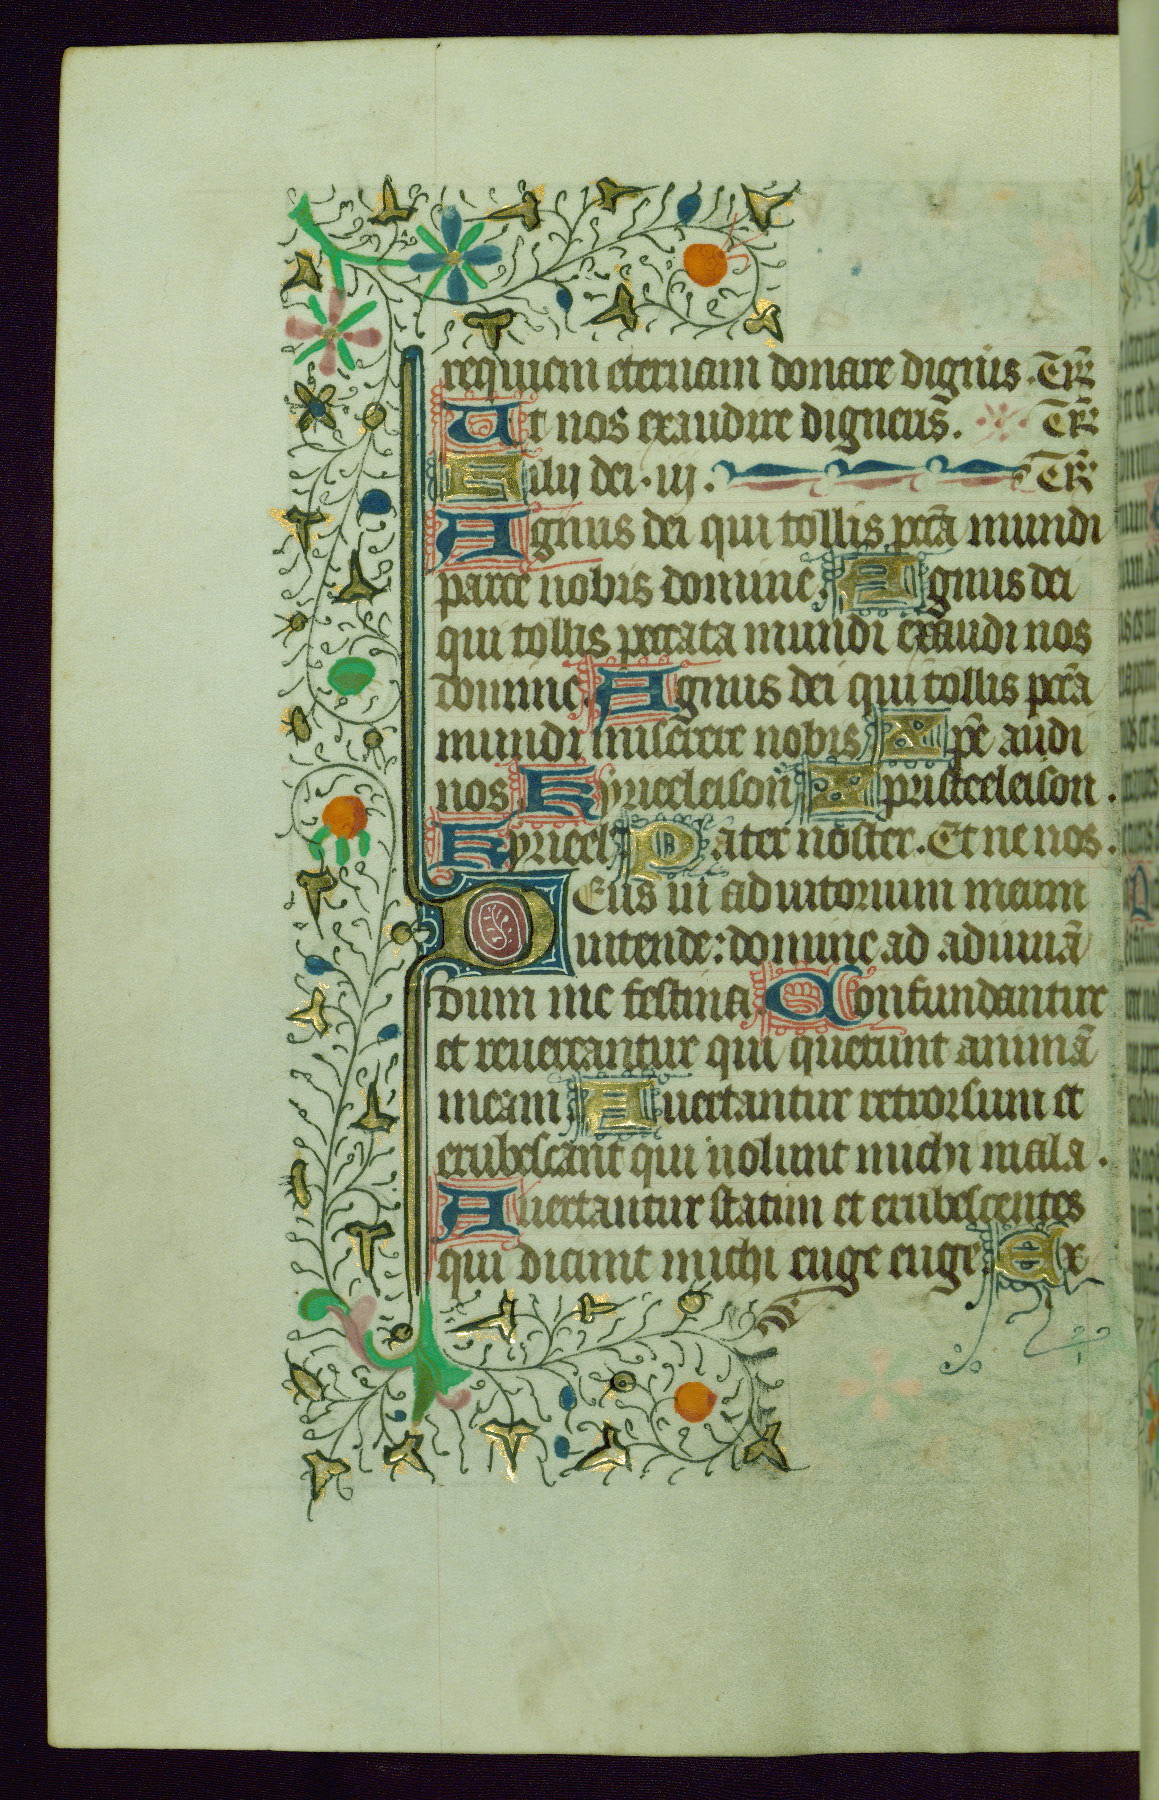 requiem eternam donare dignis. Tr̄
Ut nos exaudire digneris. Tr̄
Filij dei. iij. Tr̄
Agnus dei qui tollis pctā mundi
parce nobis domine. Agnus dei
qui tollis peccata mundi exaudi nos
domine. Agnus dei qui tollis pctā
mundi miserere nobis. Xpē audi
nos. Kyrieeleison. Xpristeeleison.
Kyrieel. Pater noster. Et ne nos.
Deus in adiutorium meum
intende: domine ad adiuuā
dum me festina. Confundantur
et reuereantur qui querunt animā
meam. Auertantur retrorsum et
erubescant qui uolunt michi mala.
Auertantur statim et erubescentes
qui dicunt michi euge euge. Ex